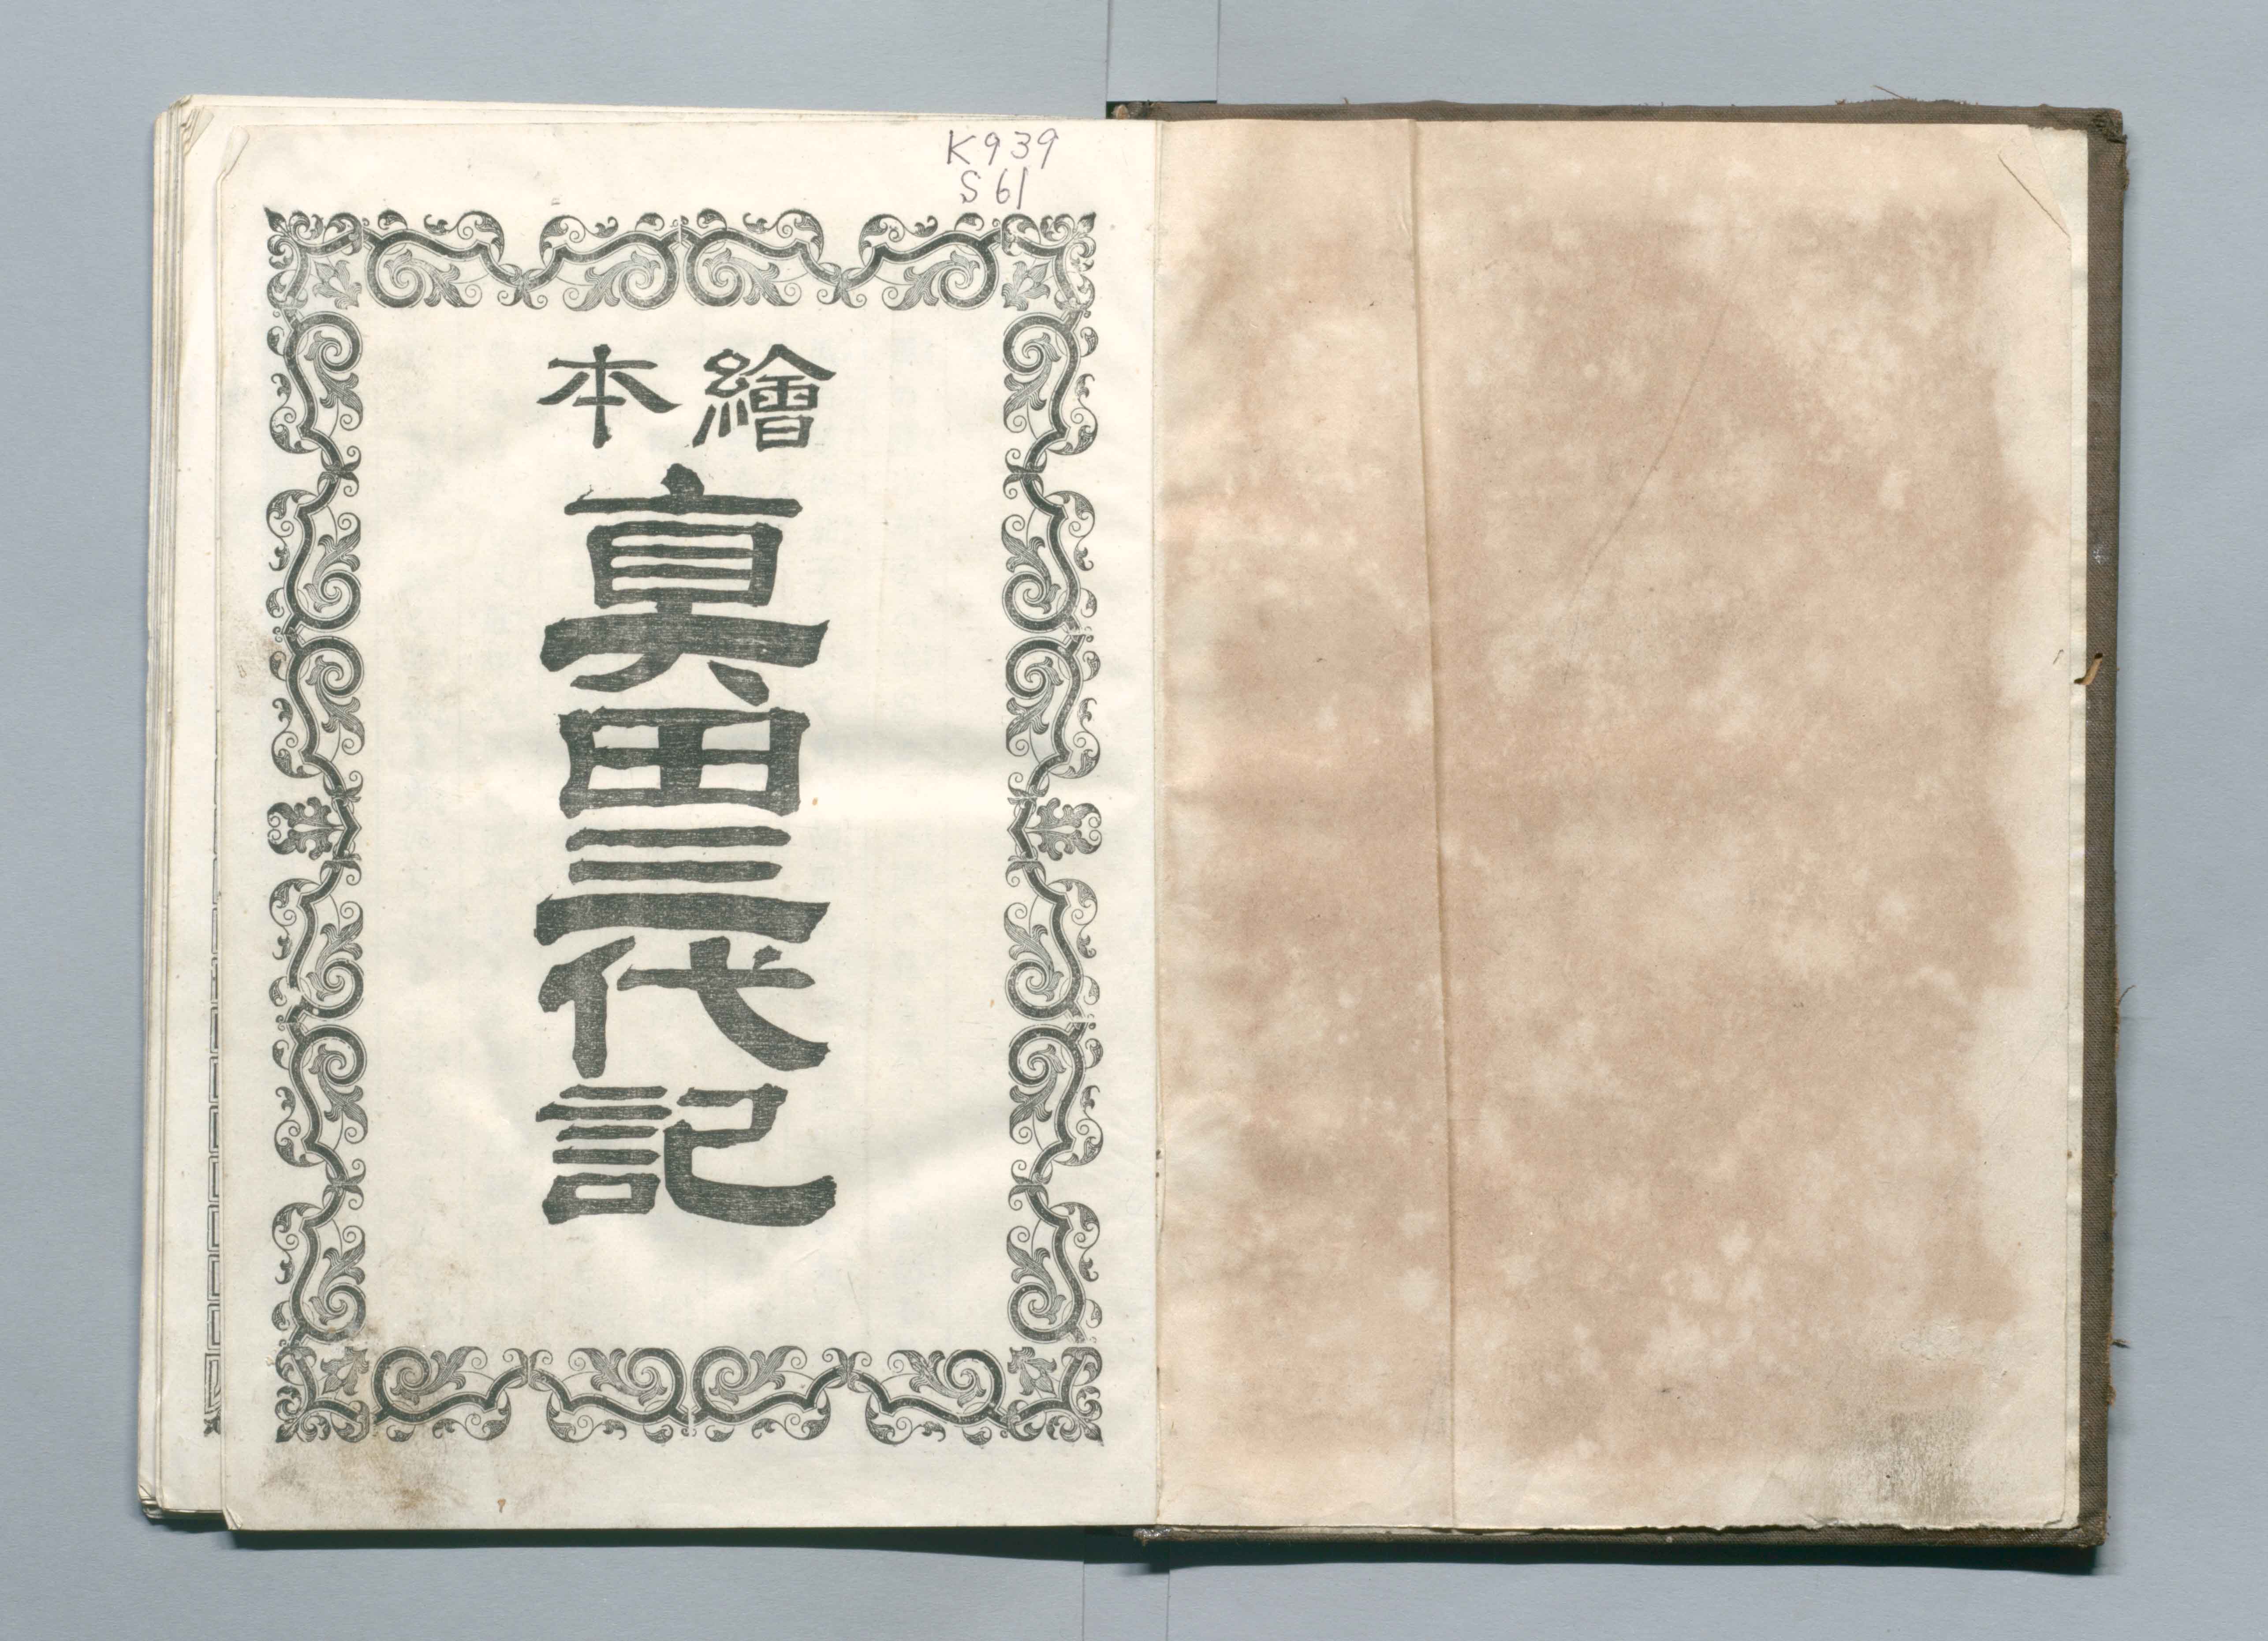 K939
S61
繪本
眞田三代記